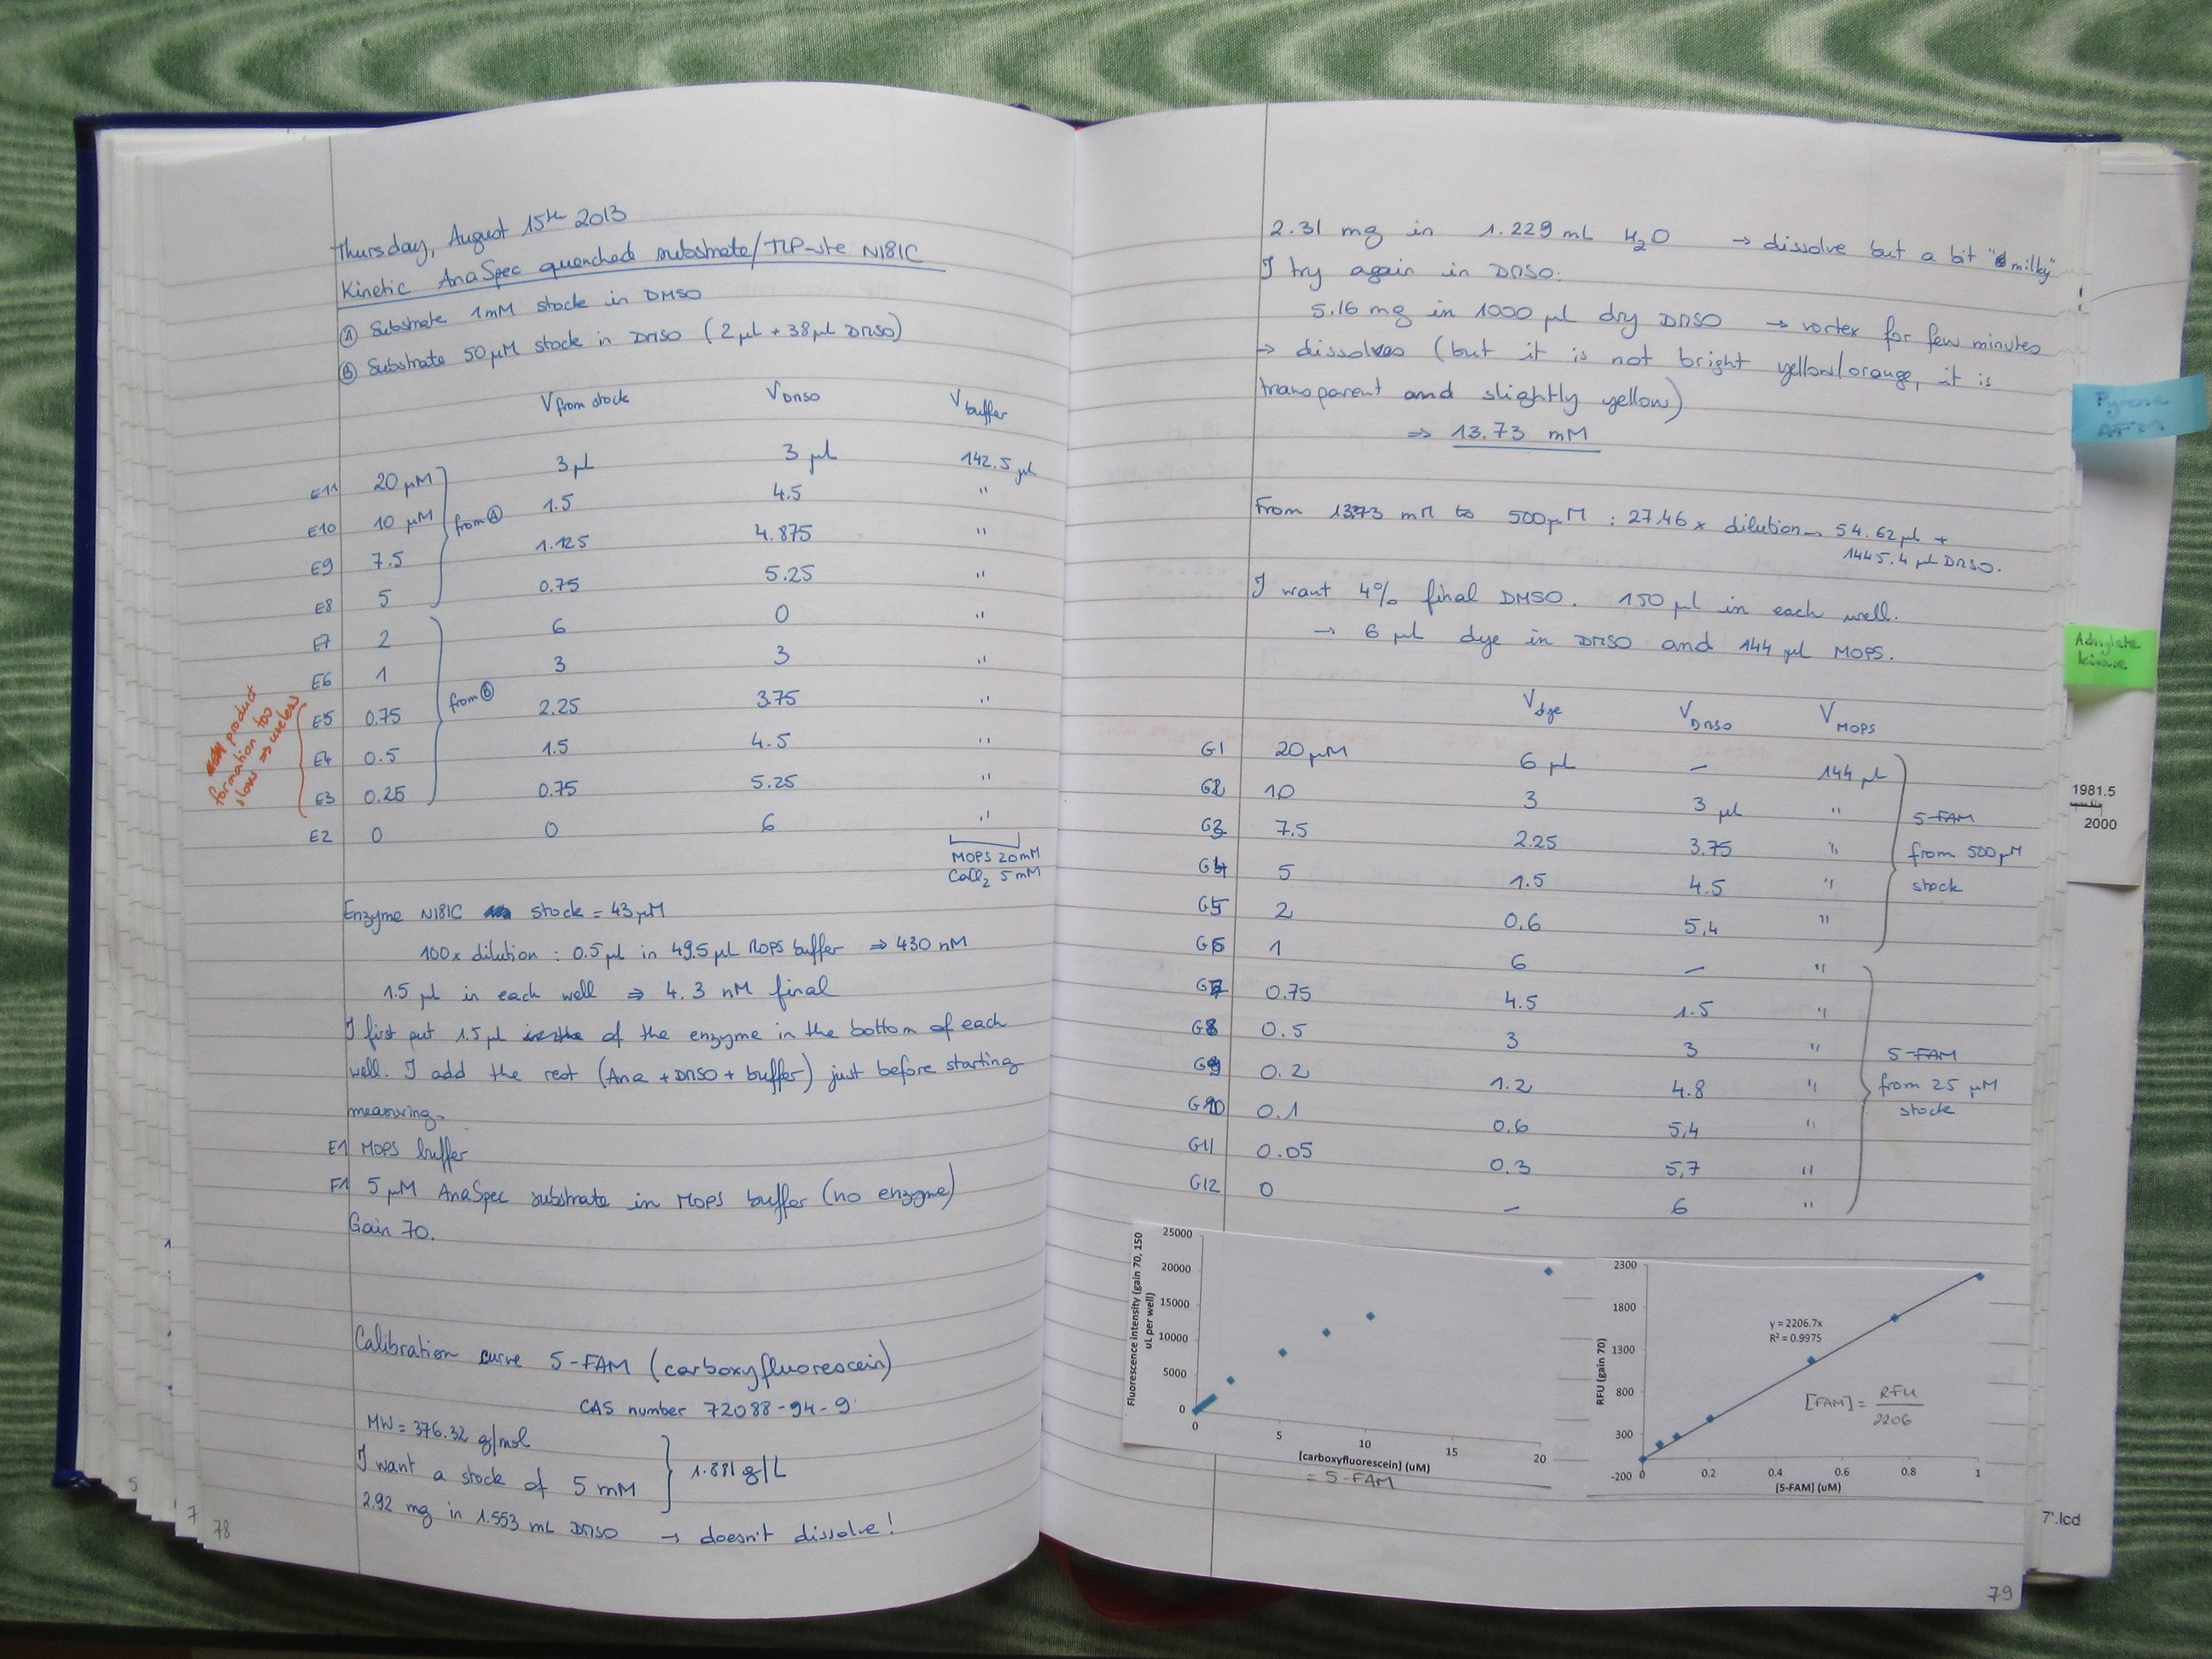 Thursday, August 15th 2013
Kinetic AnaSpec quenched substrate/TLP-ste N181C
Ⓐ Substrate 1mM stock in DMSO
Ⓑ Substrate 50 µM stock in DMSO (2 µL + 38 µL DMSO)
V from stock V DMSO V buffer
E11 20 µM 3 µL 3 µL 142.5 µL
E10 10 µM 1.5 4.5 "
from Ⓐ
E9 7.5 1.125 4.875 "
E8 5 0.75 5.25 "
E7 2 6 0 "
E6 1 3 3 "
from Ⓑ
E5 0.75 2.25 3.75 "
E4 0.5 1.5 4.5 "
E3 0.25 0.75 5.25 "
E2 0 0 6 "
product
formation too
slow ⇒ useless
MOPS 20mM
CaCl2 5 mM
Enzyme N181C stock = 43 µM
100x dilution : 0.5 µL in 49.5 µL MOPS buffer ⇒ 430 nM
1.5 µL in each well ⇒ 4.3 nM final
I first put 1.5 µL of the enzyme in the bottom of each
well. I add the rest (Ana + DMSO + buffer) just before starting
measuring.
E1 MOPS buffer
F1 5 µM AnaSpec substrate in MOPS buffer (no enzyme)
Gain 70.
Calibration curve 5-FAM (carboxyfluorescein)
CAS number 72088-94-9
MW = 376.32 g/mol
I want a stock of 5 mM
1.881 g/L
2.92 mg in 1.553 mL DMSO → doesn't dissolve!
78
2.31 mg in 1.229 mL H2O → dissolve but a bit "milky"
I try again in DMSO:
5.16 mg in 1000 µL dry DMSO → vortex for few minutes
→ dissolves (but it is not bright yellow/orange, it is
transparent and slightly yellow)
⇒ 13.73 mM
From 13.73 mM to 500 µM : 27.46 x dilution → 54.62 µL +
1445.4 µL DMSO.
I want 4% final DMSO. 150 µL in each well.
→ 6 µL dye in DMSO and 144 µL MOPS.
V dye V DMSO V MOPS
G1 20 µM 6 µL – 144 µL
G2 10 3 3 µL "
G3 7.5 2.25 3.75 "
G4 5 1.5 4.5 "
G5 2 0.6 5.4 "
5-FAM
from 500 µM
stock
G6 1 6 – "
G7 0.75 4.5 1.5 "
G8 0.5 3 3 "
G9 0.2 1.2 4.8 "
G10 0.1 0.6 5.4 "
G11 0.05 0.3 5.7 "
G12 0 – 6 "
5-FAM
from 25 µM
stock
Fluorescence intensity (gain 70, 150
uL per well)
25000
20000
15000
10000
5000
0
0 5 10 15 20
[carboxyfluorescein] (uM)
= 5-FAM
RFU (gain 70)
2300
1800
1300
800
300
-200
0 0.2 0.4 0.6 0.8 1
[5-FAM] (uM)
y = 2206.7x
R² = 0.9975
[FAM] = RFU
2206
79
Pyrene
AFM
Adnylate
kinase
1981.5
2000
7'.lcd
5
7